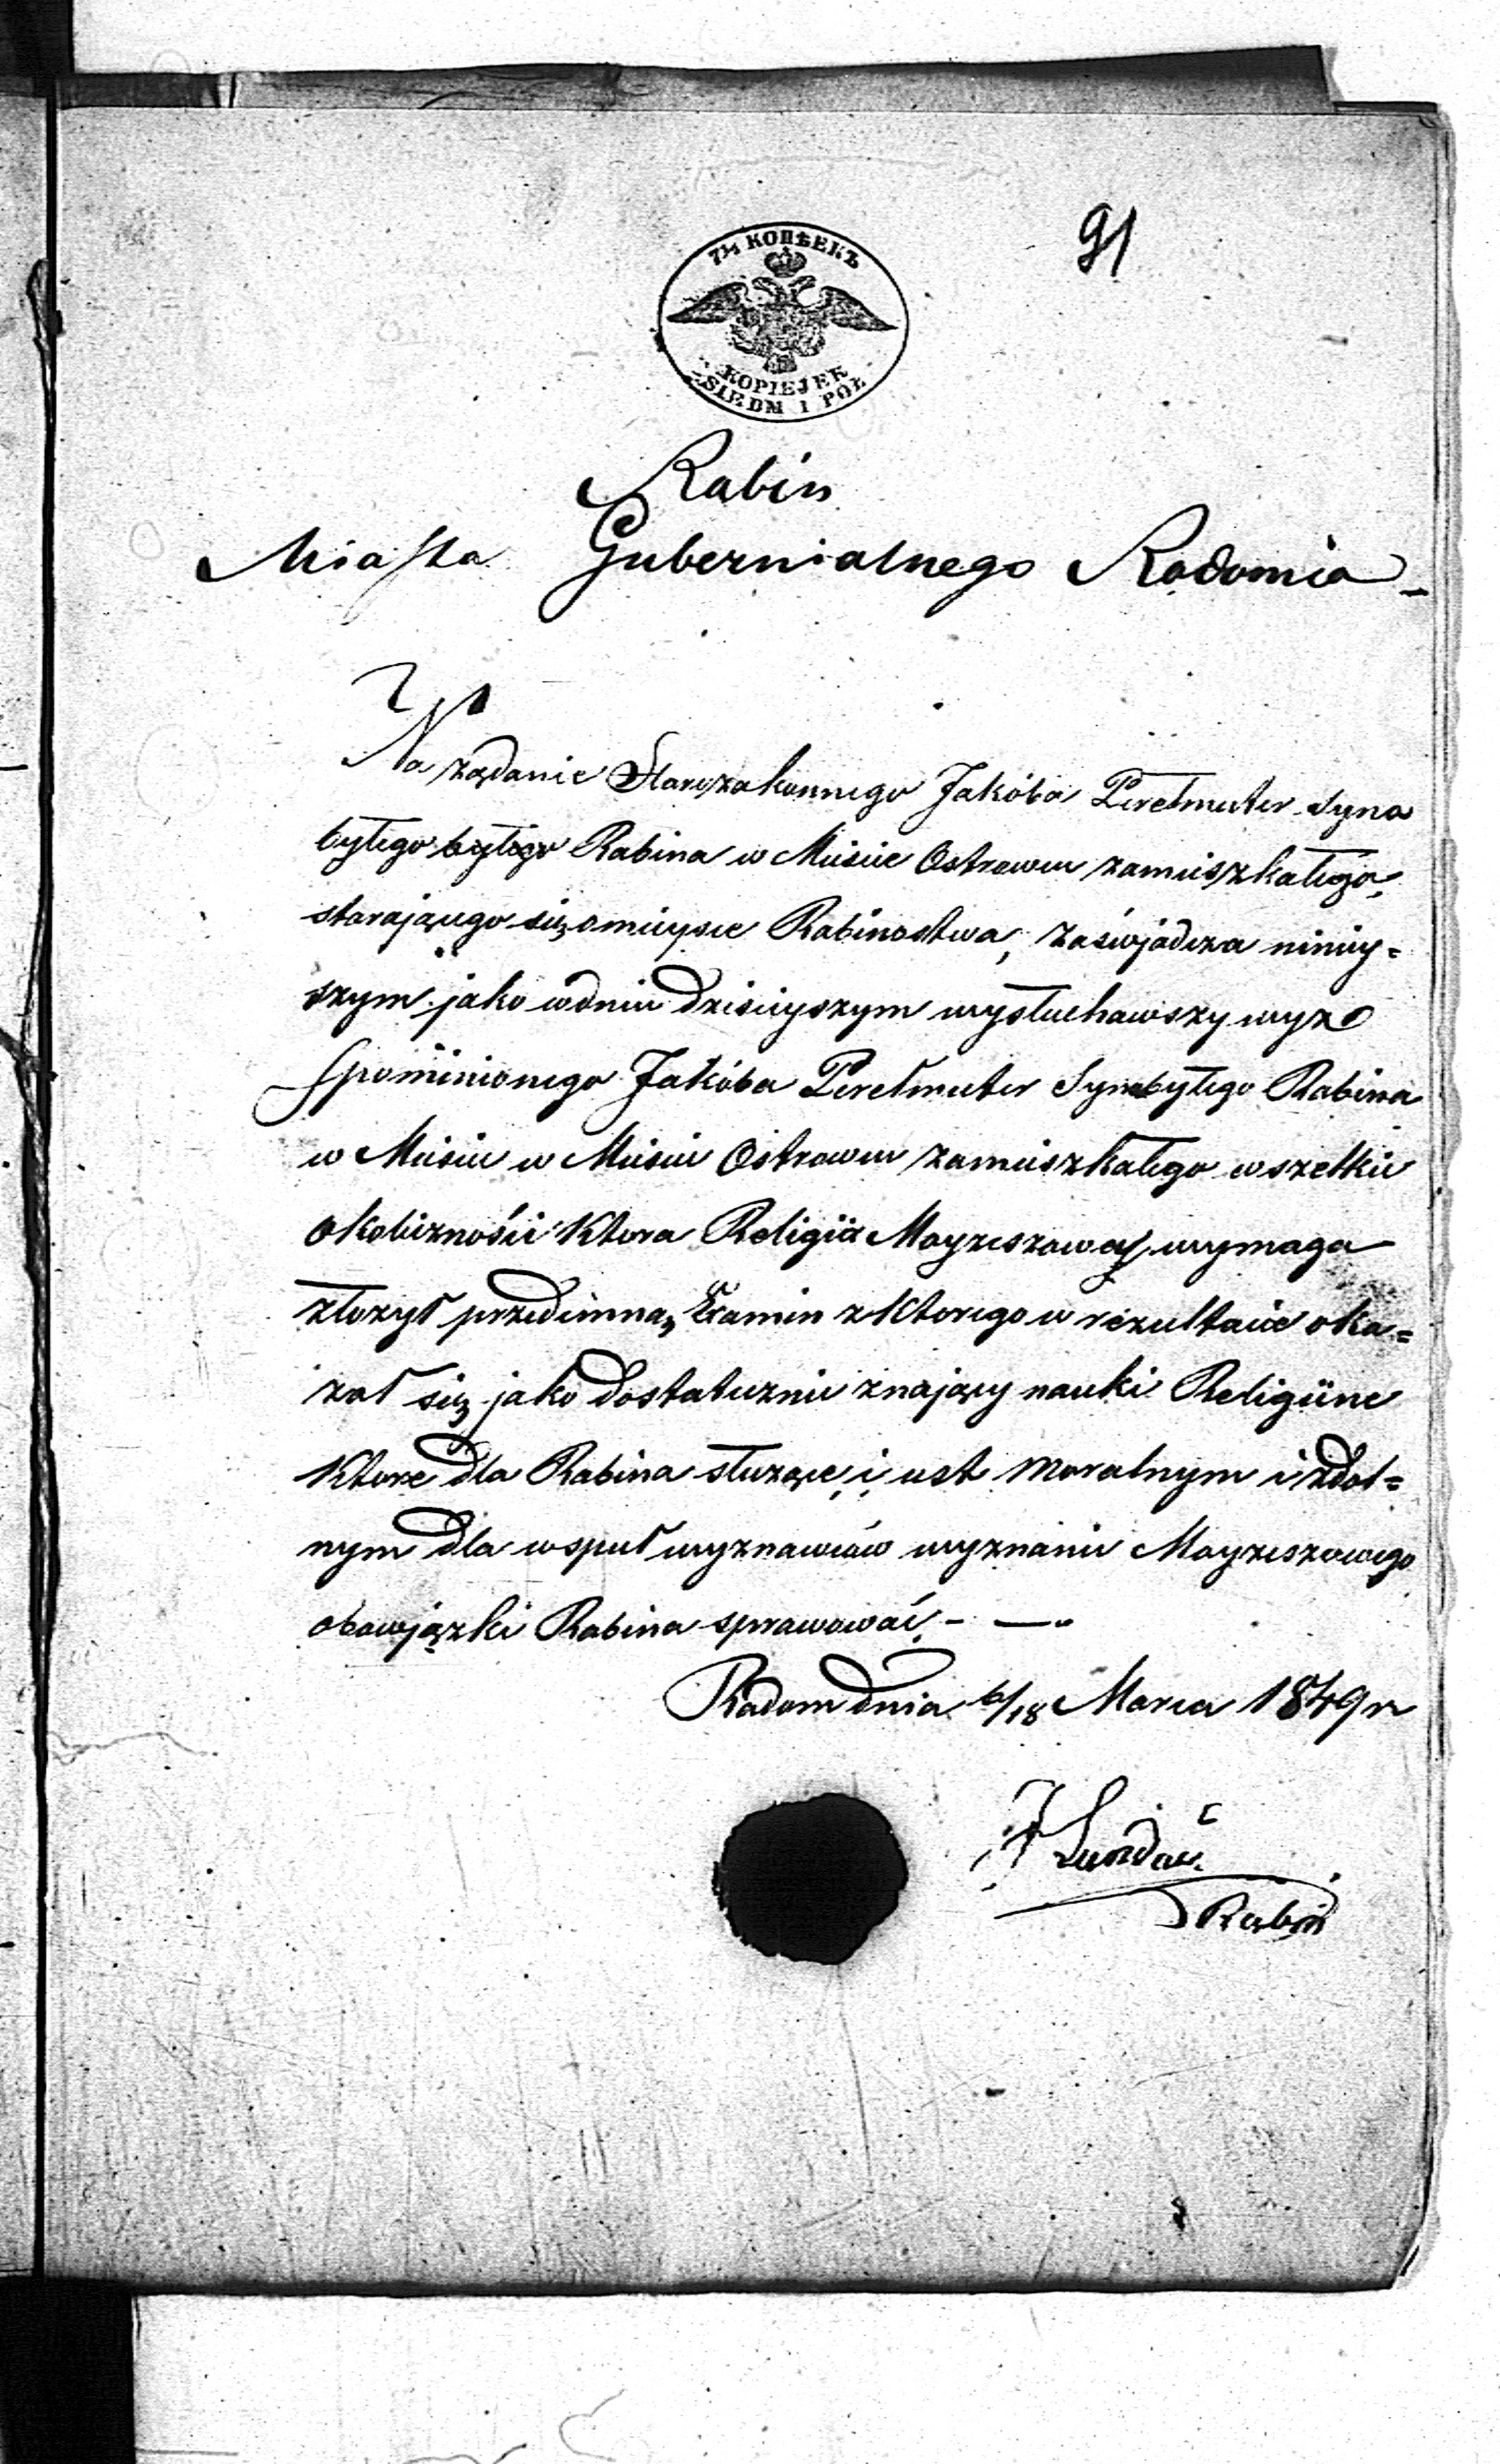 91
7½ КОПѢЕКЪ
KOPIEJEK
SIEDM I PÓŁ
Rabin
Miasta Gubernialnego Radomia
Na żądanie Starozakonnego Jakóba Perelmuter syna
byłego byłego Rabina w Mieście Ostrowcu zamieszkałego,
starającego się o mieysce Rabinostwa, zaświadcza niniey=
szym jako w dniu dzisieyszym wysłuchawszy wyż
spominionego Jakóba Perelmuter Syna byłego Rabina
w Mieście w Mieście Ostrowcu zamieszkałego wszelkie
okoliczności ktora Religia Mayzeszowey wymaga
złożył przedemną Examin z ktorego w rezultacie oka=
zał się jako dostatecznie znający nauki Religiine
ktore dla Rabina służące, i jest moralnym i zdol=
nym dla wspuł wyznawców wyznania Mayzeszowego
obowjązki Rabina sprawować. -
Radom dnia 6/18 Marca 1849 r
Landau
Rabin